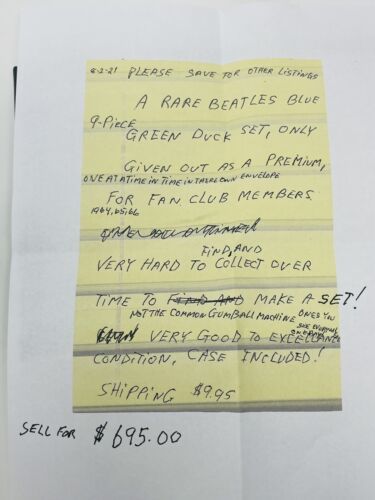 8-2-21 PLEASE SAVE FOR OTHER LISTINGS
A RARE BEATLES BLUE
9-PIECE
GREEN DUCK SET, ONLY
GIVEN OUT AS A PREMIUM,
ONE AT A TIME IN TIME IN THERE OWN ENVELOPE
FOR FAN CLUB MEMBERS
1964, 65, 66
FIND, AND
VERY HARD TO COLLECT OVER
TIME TO FIND AND MAKE A SET!
NOT THE COMMON GUMBALL MACHINE ONES YOU
SEE EVERYDAY
VERY GOOD TO EXCELLANCE
CONDITION, CASE INCLUDED!
SHIPPING $9.95
SELL FOR $695.00